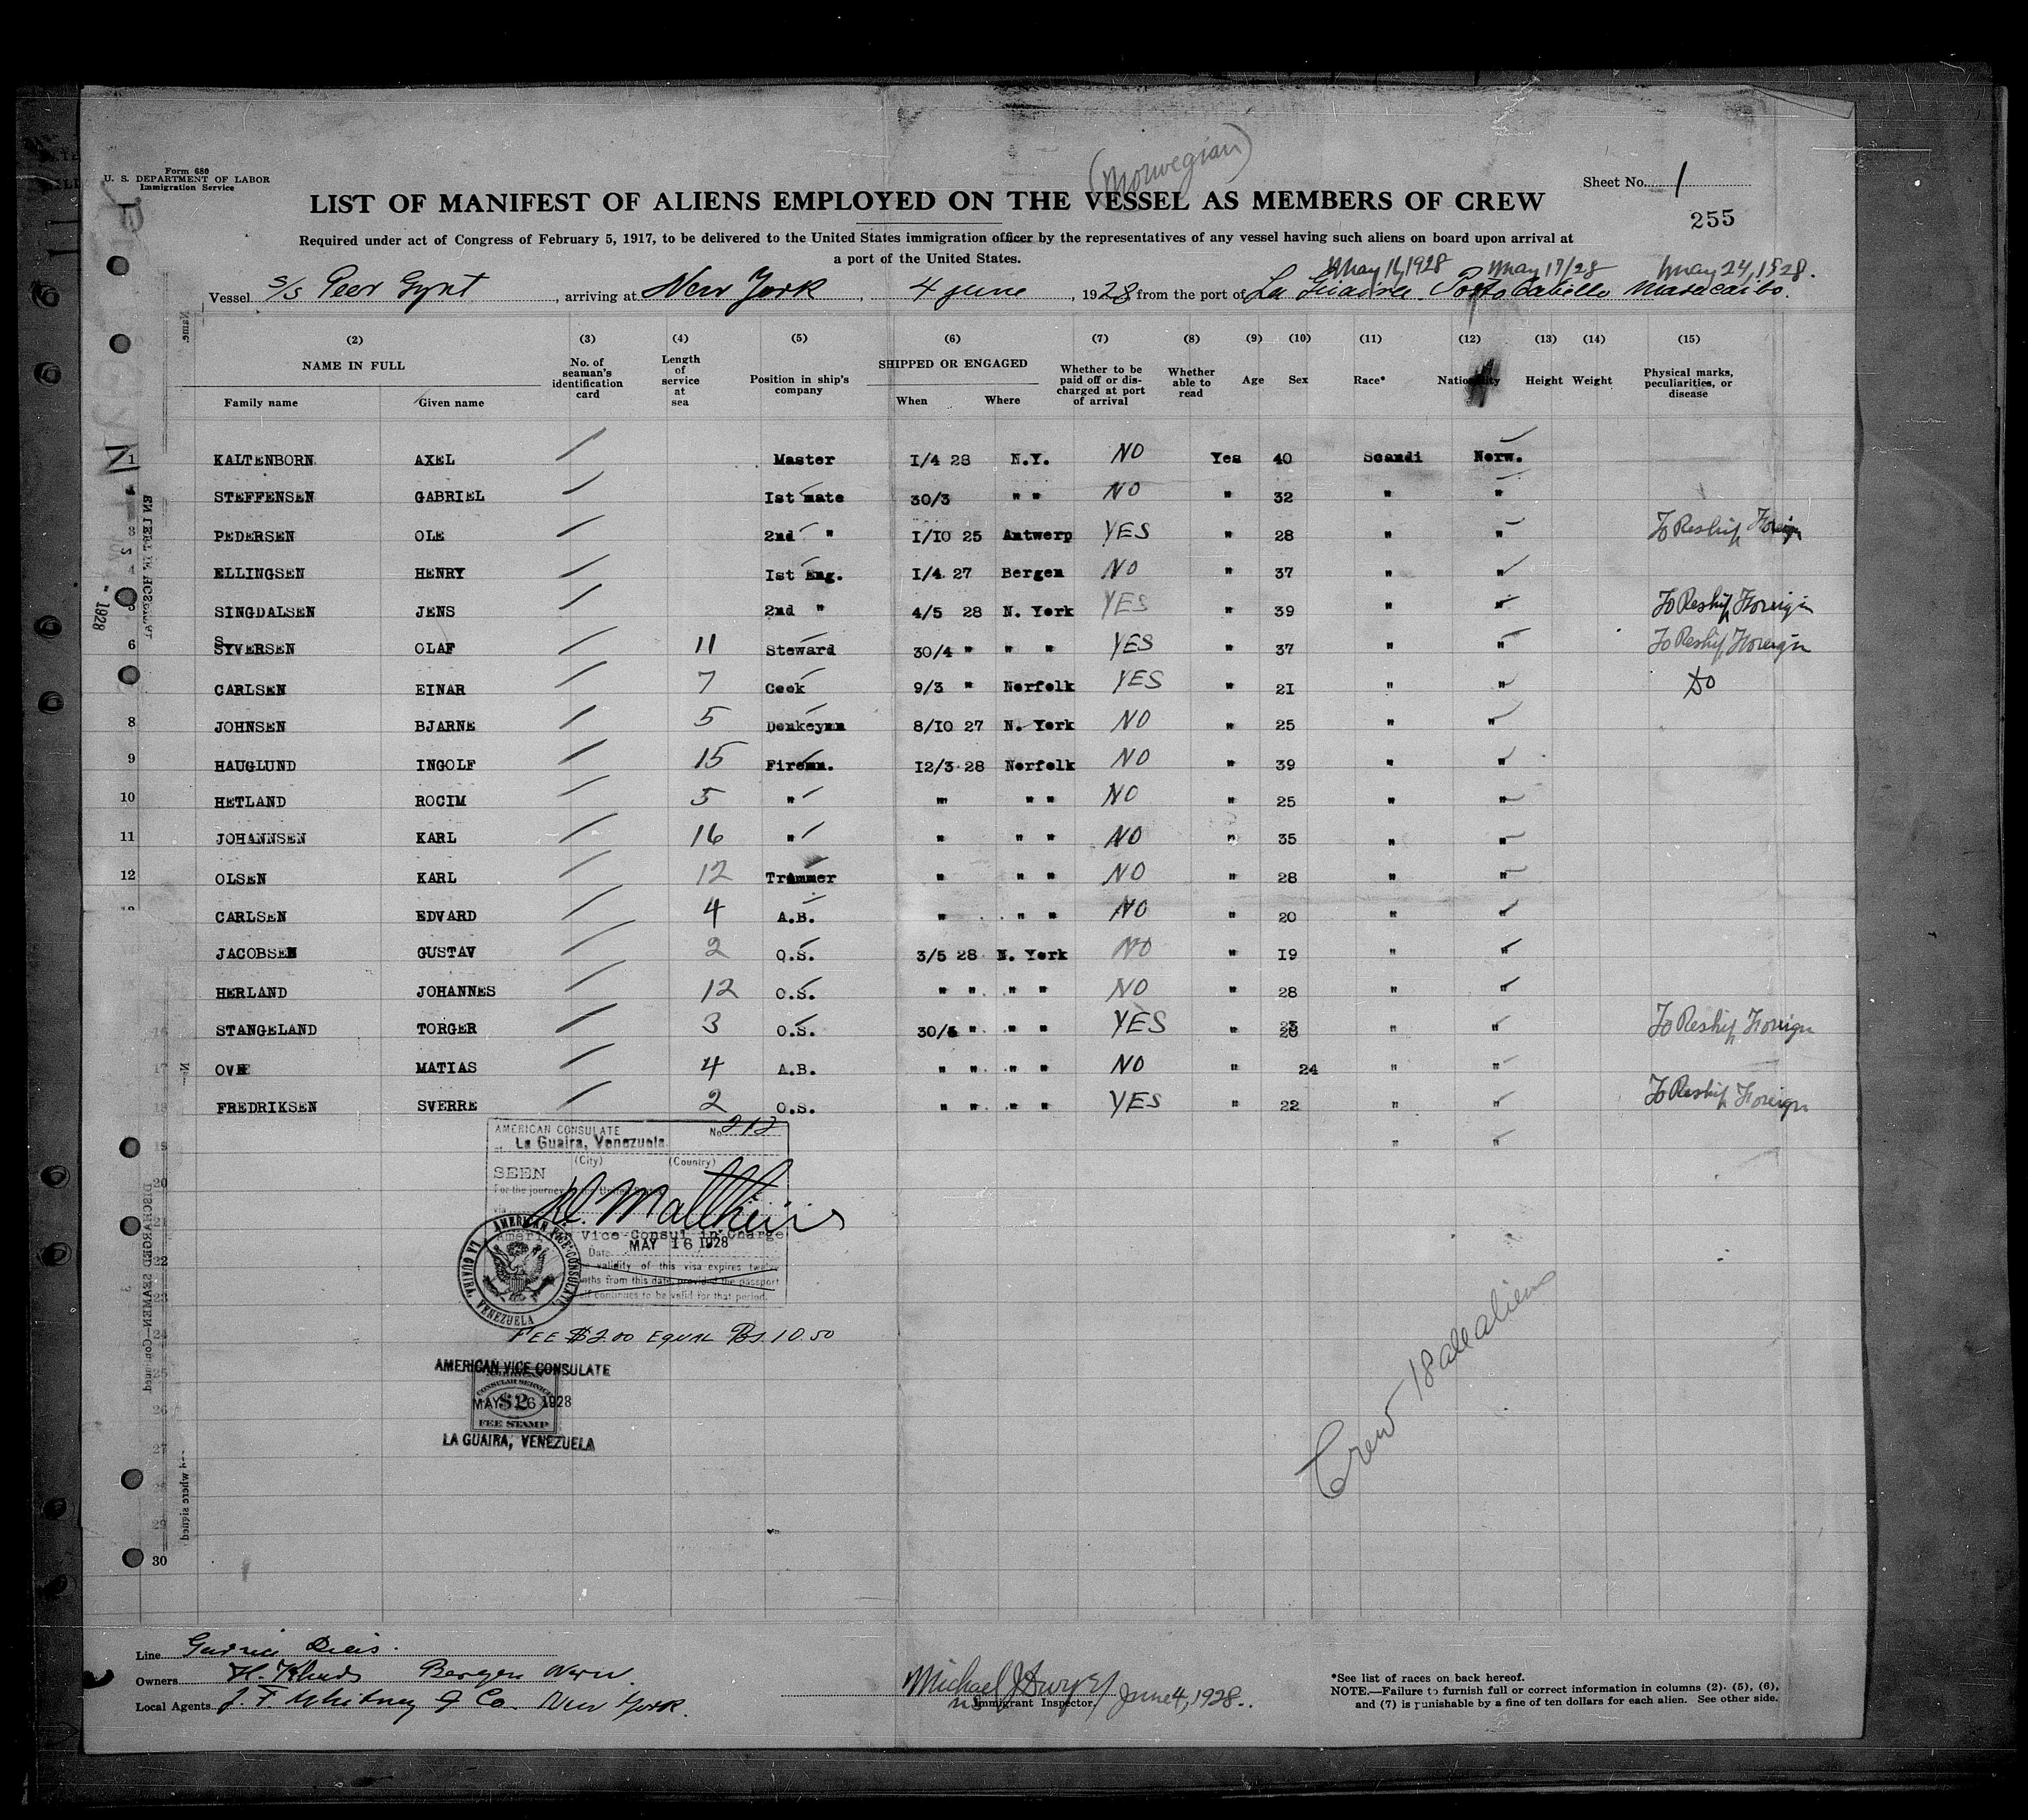 Form 680
U. S. DEPARTMENT OF LABOR
Immigration Service
(Norwegian)
Sheet No. 1
LIST OF MANIFEST OF ALIENS EMPLOYED ON THE VESSEL AS MEMBERS OF CREW
255
Required under act of Congress of February 5, 1917, to be delivered to the United States immigration officer by the representatives of any vessel having such aliens on board upon arrival at
a port of the United States.
May 16, 1928 May 17/28 May 24, 1928.
Vessel S/S Peer Gynt, arriving at New York, 4 June, 1928 from the port of La Guaira Porto Cabello Maracaibo.
(2) (3) (4) (5) (6) (7) (8) (9) (10) (11) (12) (13) (14) (15)
NAME IN FULL No. of seaman's identification card Length of service at sea Position in ship's company SHIPPED OR ENGAGED Whether to be paid off or discharged at port of arrival Whether able to read Age Sex Race* Nationality Height Weight Physical marks, peculiarities, or disease
Family name Given name When Where
1 KALTENBORN AXEL Master I/4 28 N.Y. NO Yes 40 Scandi Norw.
STEFFENSEN GABRIEL Ist mate 30/3 " " NO " 32 " "
3 PEDERSEN OLE 2nd " I/IO 25 Antwerp YES " 28 " " To Reship Foreign
4 ELLINGSEN HENRY Ist Eng. I/4 27 Bergen NO " 37 " "
SINGDALSEN JENS 2nd " 4/5 28 N. York YES " 39 " " To Reship Foreign
6 SYVERSEN OLAF 11 Steward 30/4 " " " YES " 37 " " To Reship Foreign
CARLSEN EINAR 7 Cook 9/3 " Norfolk YES " 2I " " Do
8 JOHNSEN BJARNE 5 Donkeymn 8/IO 27 N. York NO " 25 " "
9 HAUGLUND INGOLF 15 Firemn. I2/3 28 Norfolk NO " 39 " "
10 HETLAND ROCIM 5 " " " " NO " 25 " "
11 JOHANNSEN KARL 16 " " " " NO " 35 " "
12 OLSEN KARL 12 Trimmer " " " NO " 28 " "
CARLSEN EDVARD 4 A.B. " " " NO " 20 " "
JACOBSEN GUSTAV 2 O.S. 3/5 28 N. York NO " I9 " "
HERLAND JOHANNES 12 O.S. " " " " NO " 28 " "
16 STANGELAND TORGER 3 O.S. 30/4 " " " YES " 23 " " To Reship Foreign
17 OVE MATIAS 4 A.B. " " " " NO " 24 " "
18 FREDRIKSEN SVERRE 2 O.S. " " " " YES " 22 " " To Reship Foreign
19 " "
AMERICAN CONSULATE No. 212
at La Guaira, Venezuela
(City) (Country)
20 SEEN
For the journey to the United States
H. Matthews
American Vice Consul in Charge
Date MAY 16 1928
The validity of this visa expires twelve
months from this date, provided the passport
itself continues to be valid for that period.
AMERICAN VICE-CONSULATE LA GUAIRA, VENEZUELA
21
22
23
24
FEE $2.00 EQUAL Bs. 10.50
AMERICAN VICE CONSULATE
CONSULAR SERVICE
$2
MAY 16 1928
FEE STAMP
LA GUAIRA, VENEZUELA
25
26
27
30
Crew 18 all aliens
DISCHARGED SEAMEN—Continued
1928
Line
Owners Bergen Norw.
Local Agents J. F. Whitney & Co. New York.
Michael J Dwyer June 4, 1928.
US Immigrant Inspector.
*See list of races on back hereof.
NOTE.—Failure to furnish full or correct information in columns (2), (5), (6),
and (7) is punishable by a fine of ten dollars for each alien. See other side.